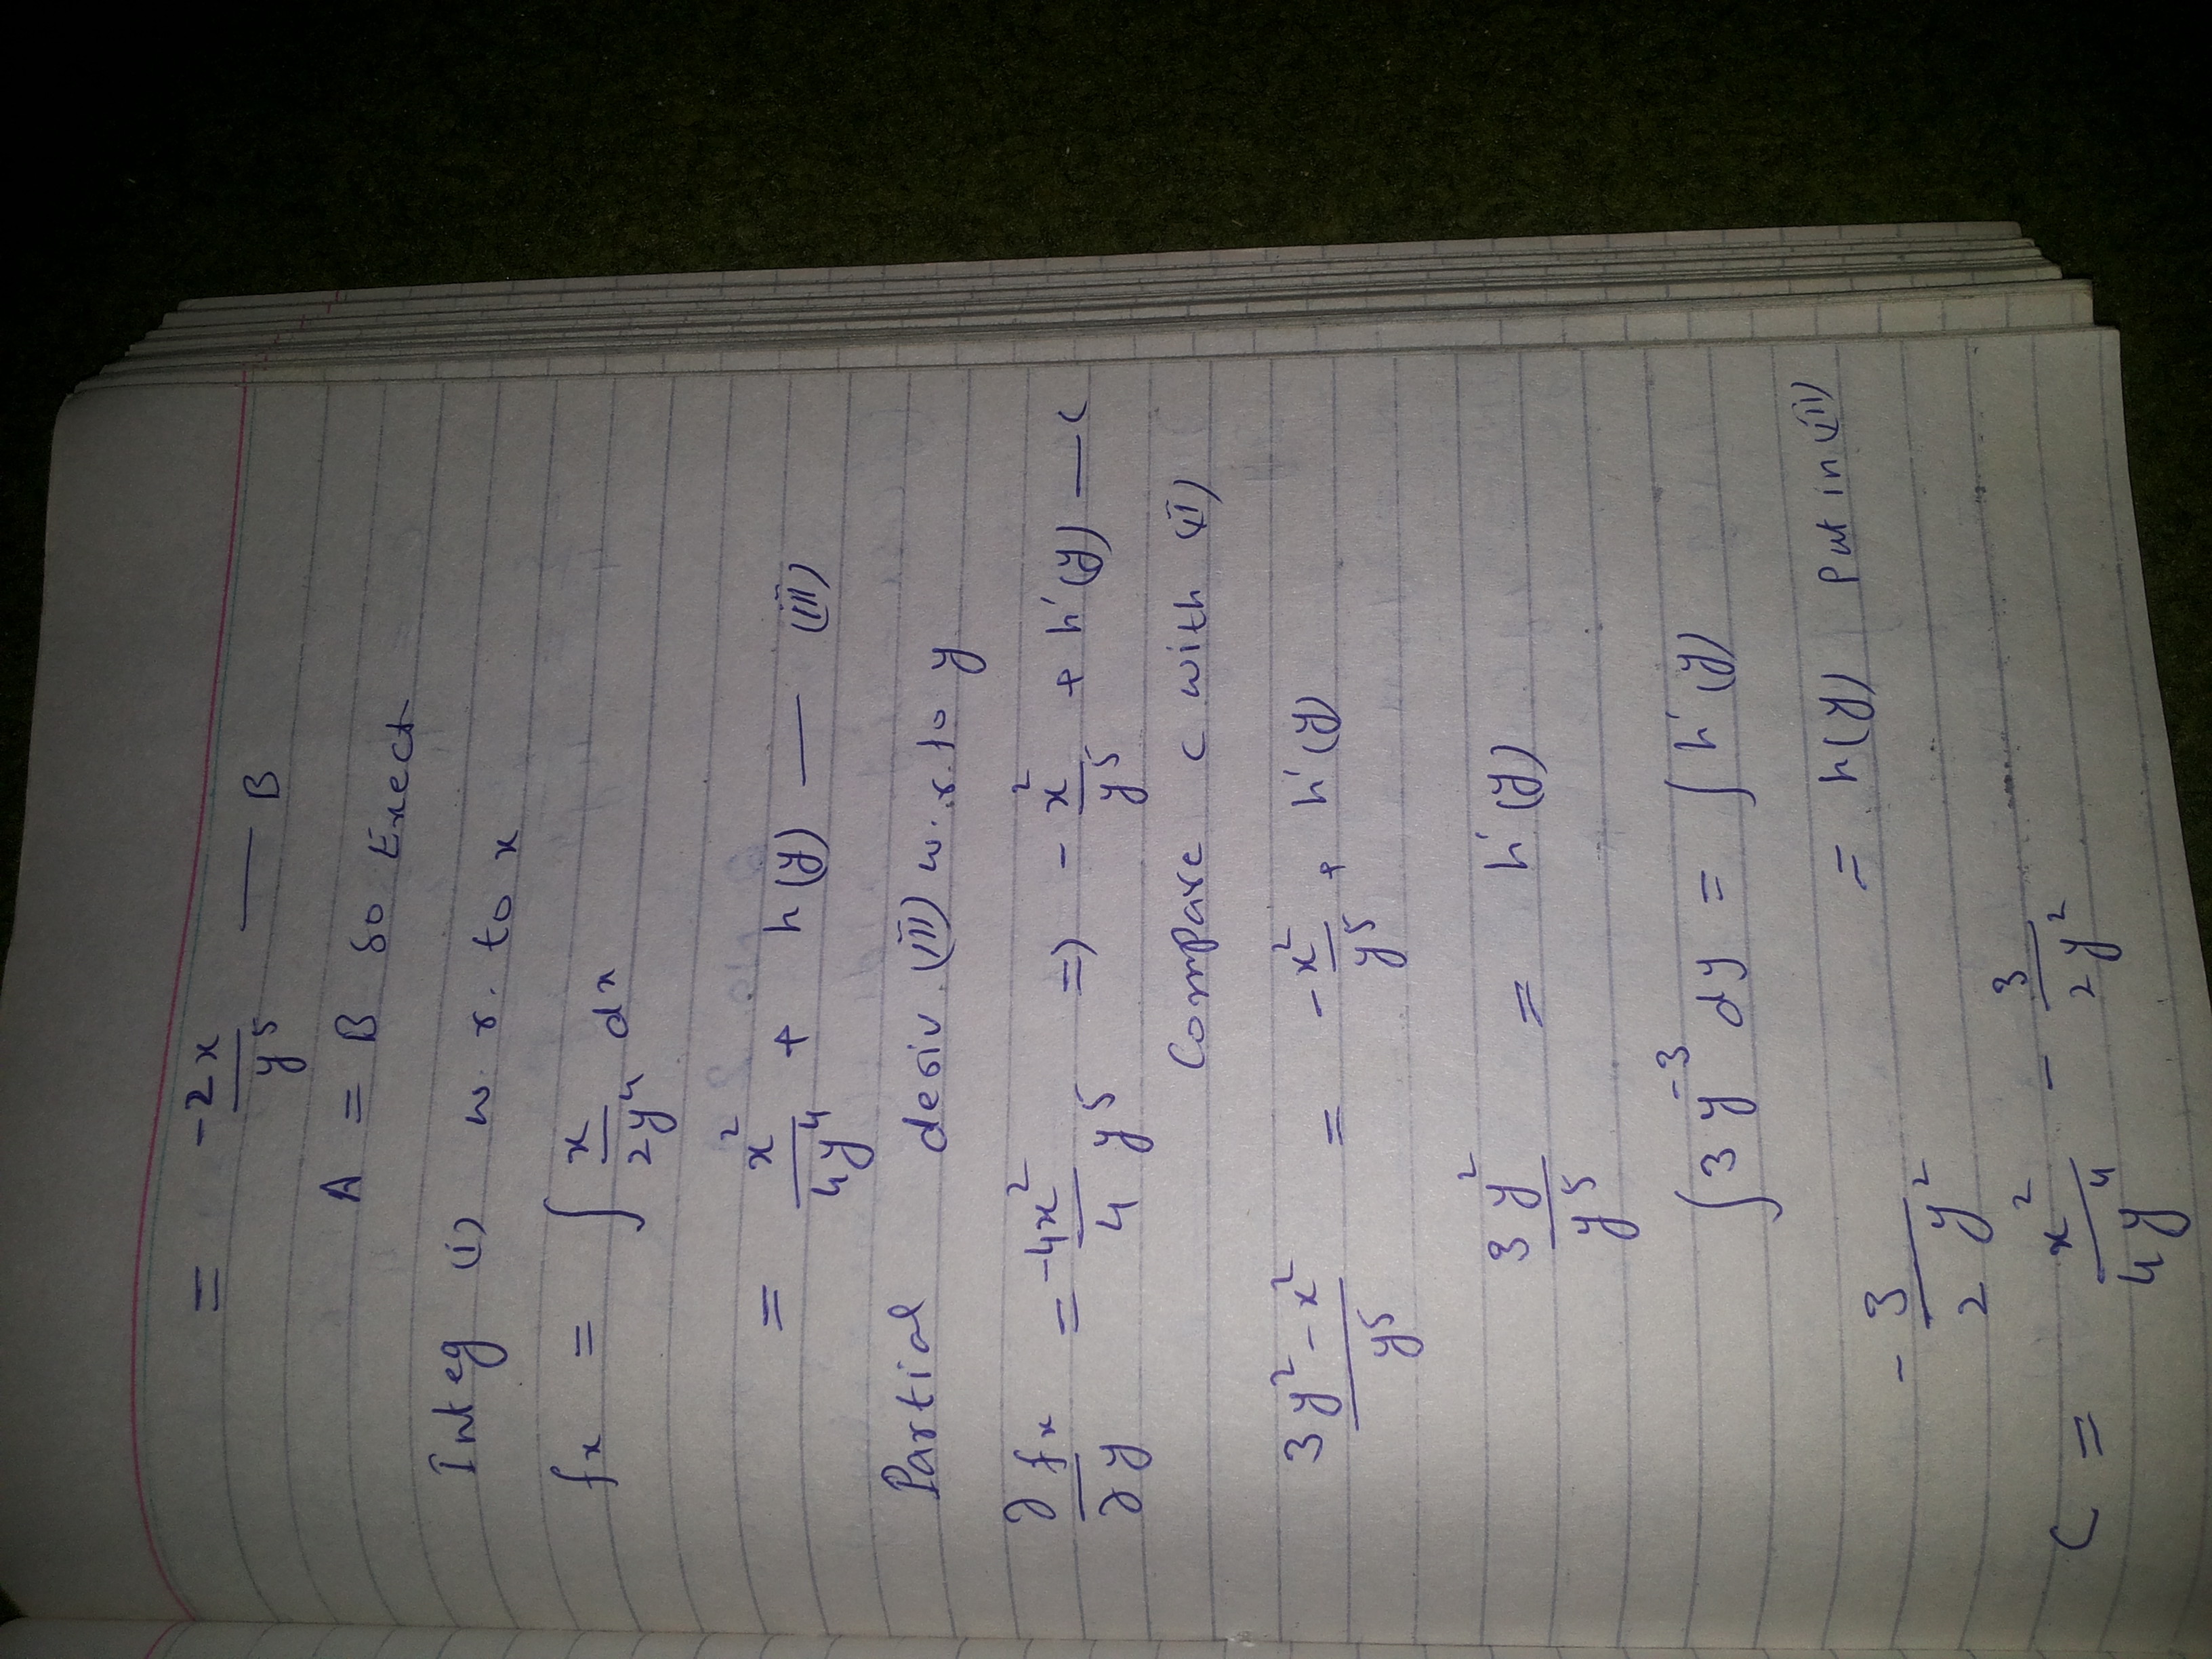 = -2x/y⁵ — B
A = B So Exect
Integ (i) w. r. to x
fx = ∫ x/2y⁴ dx
= x²/4y⁴ + h(y) — (iii)
Partial deriv. (iii) w. r. to y
∂fx/∂y = -4x²/4 y⁵ => - x²/y⁵ + h'(y) — c
Compare c with (ii)
3y² - x²/y⁵ = -x²/y⁵ + h'(y)
3y²/y⁵ = h'(y)
∫ 3y⁻³ dy = ∫ h'(y)
- 3/2 y² = h(y) Put in (iii)
C = x²/4y⁴ - 3/2y²